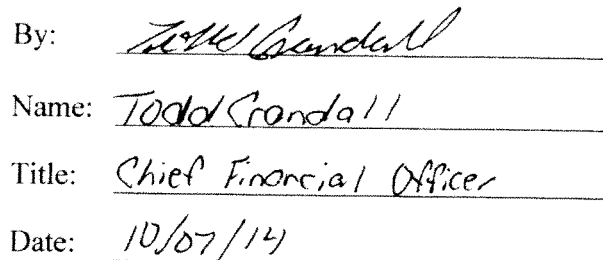 By: Todd Crandall
Name: Todd Crandall
Title: Chief Financial Officer
Date: 10/07/14